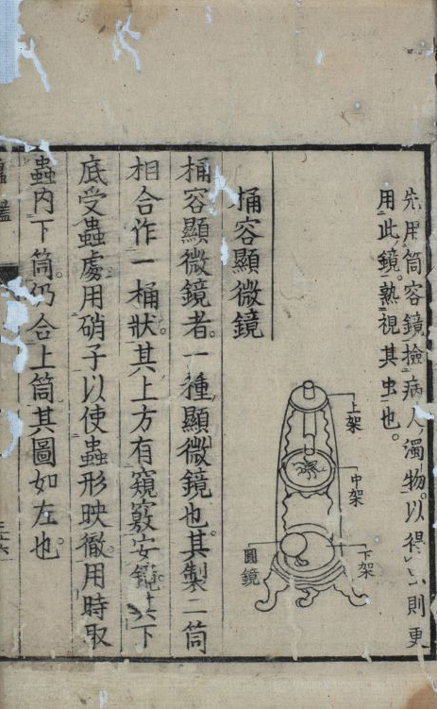 先用筒容鏡撿病人濁物。以得虫則更
用此鏡。熟視其虫也。
上架
中架
下架
圓鏡
桶容顯微鏡
桶容顯微鏡者。一種顯微鏡也。其製二筒
相合作一桶狀。其上方有窺竅安鏡其下
底受蟲處。用硝子以使蟲形映徹。用時取
蟲內下筒。仍合上筒其圖如左也。